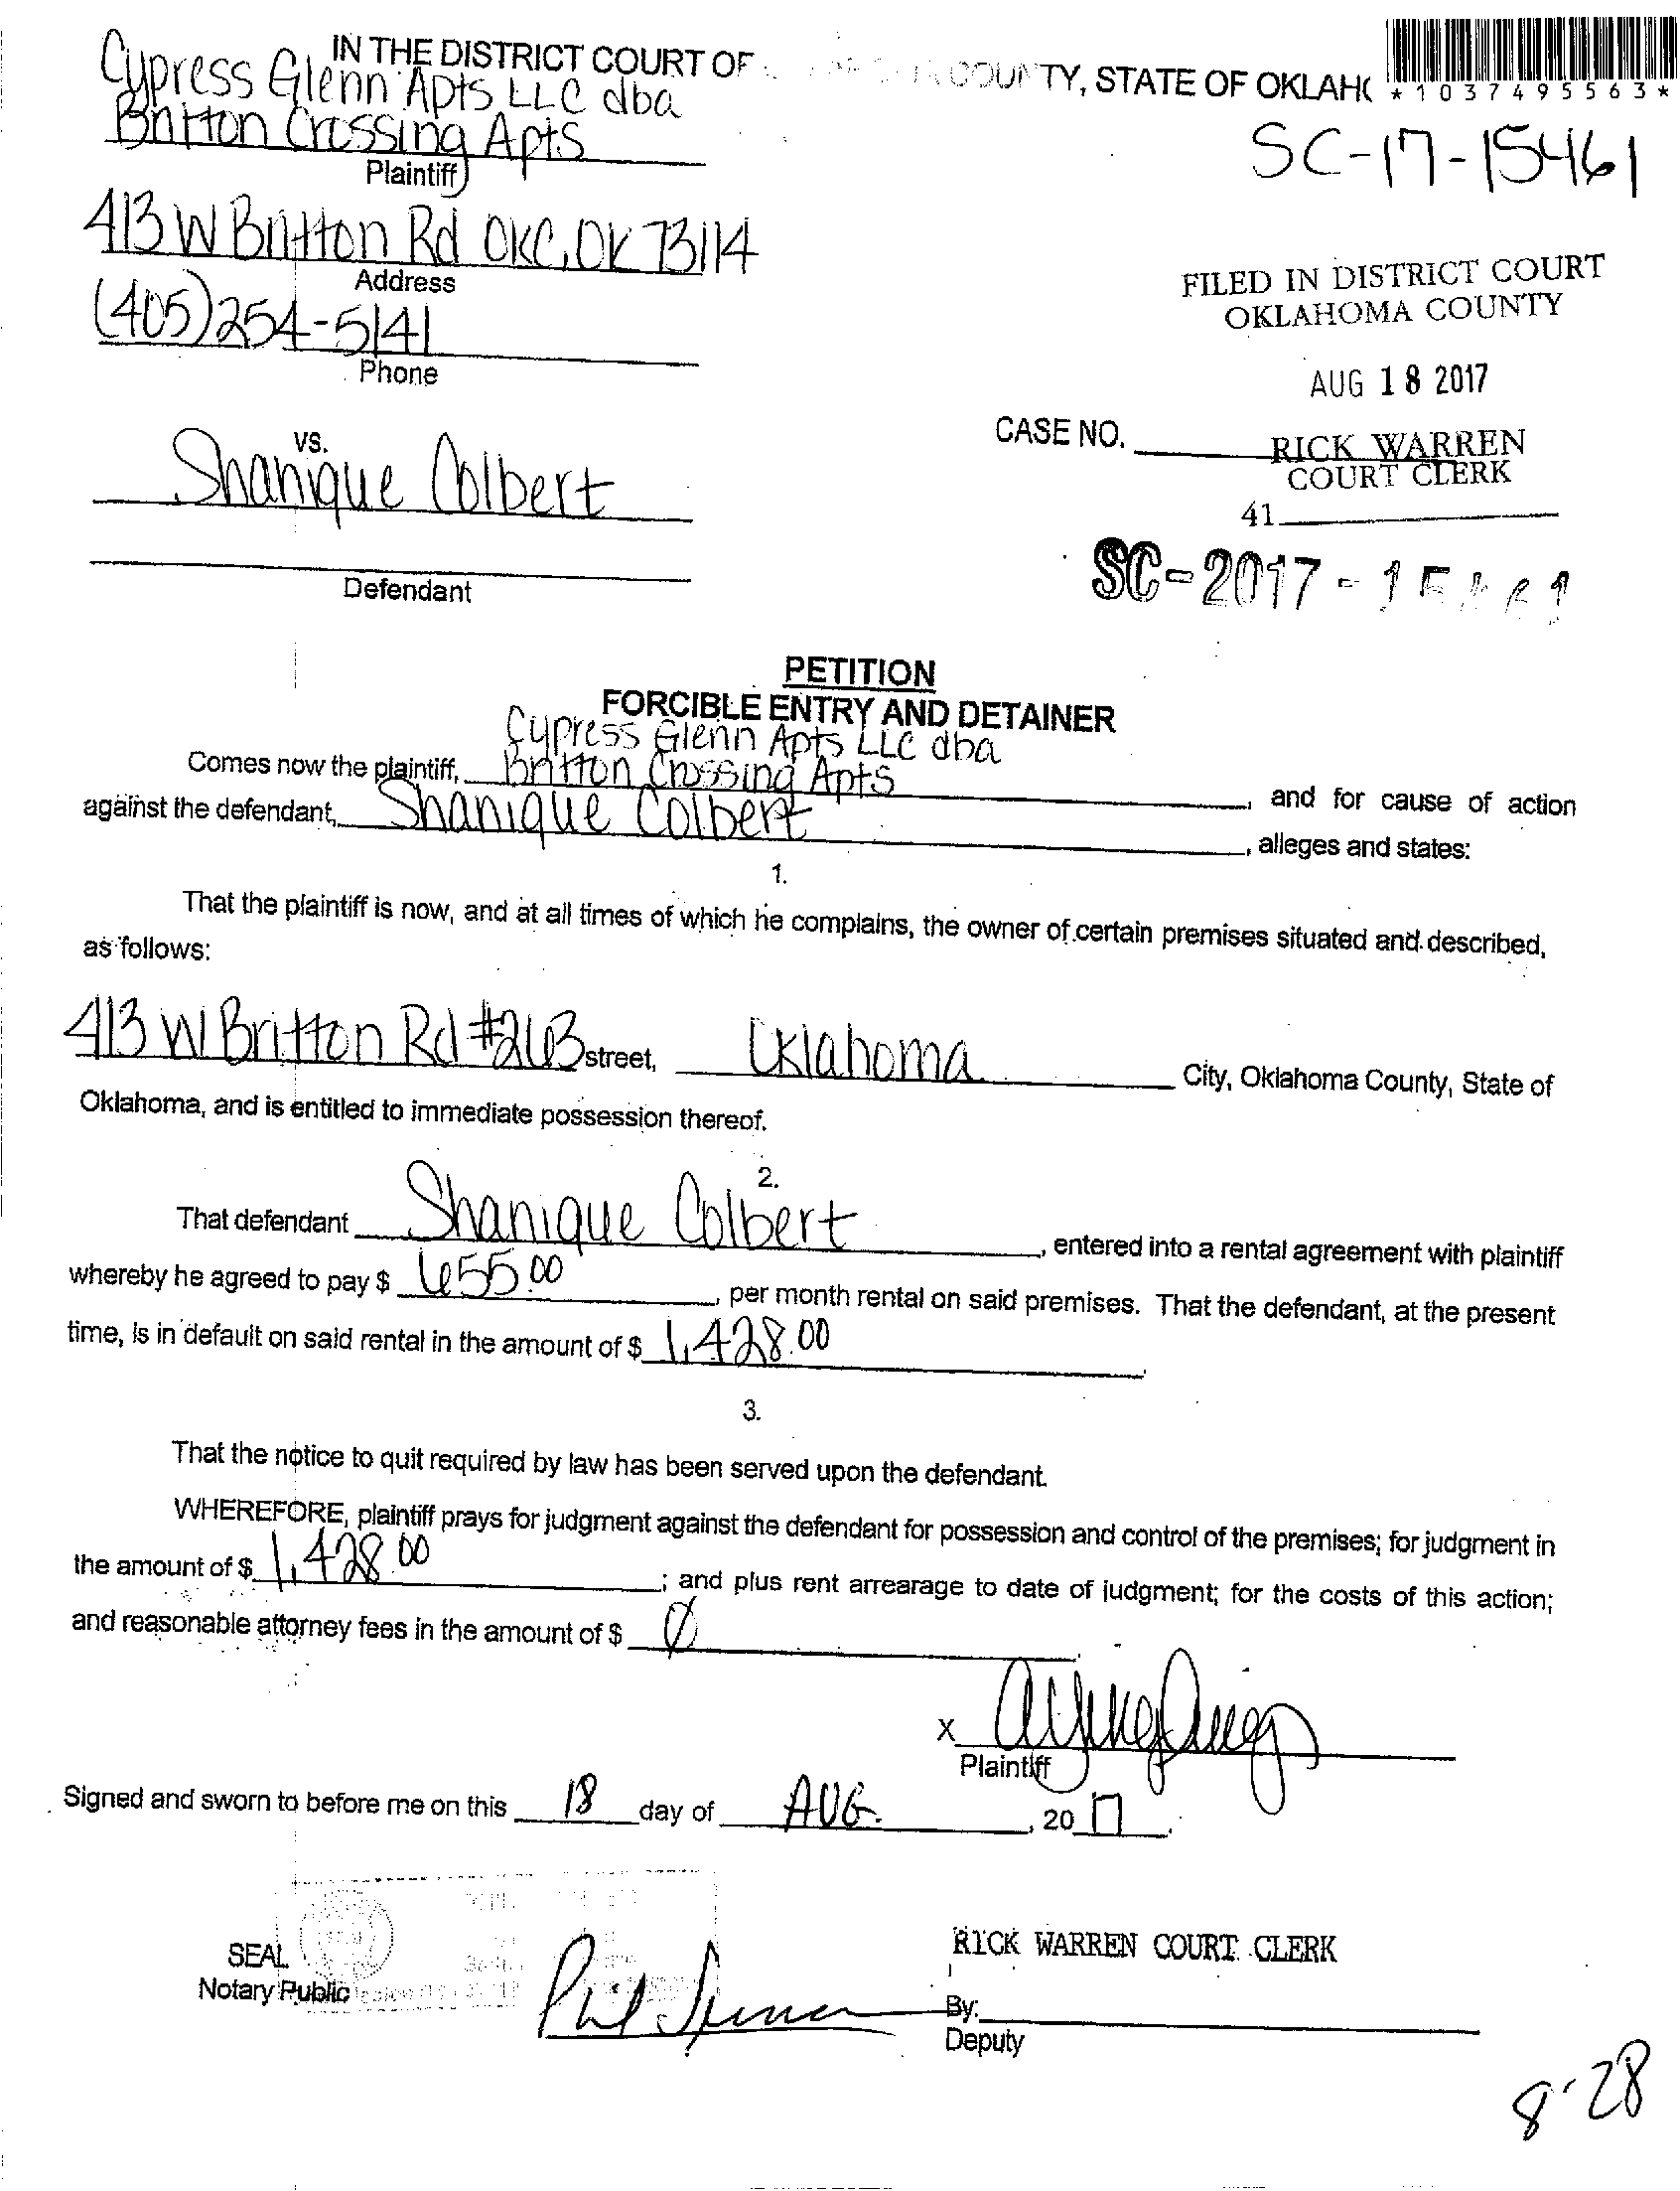 IN THE DISTRICT COURT OF COUNTY, STATE OF OKLAH
*1037495563*
Cypress Glenn Apts LLC dba
Britton Crossing Apts
Plaintiff
SC-17-15461
413 W Britton Rd OKC, OK 73114
Address
FILED IN DISTRICT COURT
OKLAHOMA COUNTY
(405)254-5141
Phone
AUG 18 2017
CASE NO.
RICK WARREN
COURT CLERK
41
vs.
Shanique Colbert
Defendant
SC-2017-
PETITION
FORCIBLE ENTRY AND DETAINER
Cypress Glenn Apts LLC dba
Comes now the plaintiff, Britton Crossing Apts, and for cause of action
against the defendant, Shanique Colbert, alleges and states:
1.
That the plaintiff is now, and at all times of which he complains, the owner of certain premises situated and described,
as follows:
413 W Britton Rd #263 street, Oklahoma City, Oklahoma County, State of
Oklahoma, and is entitled to immediate possession thereof.
2.
That defendant Shanique Colbert, entered into a rental agreement with plaintiff
whereby he agreed to pay $ 655.00, per month rental on said premises. That the defendant, at the present
time, is in default on said rental in the amount of $ 1,428.00.
3.
That the notice to quit required by law has been served upon the defendant.
WHEREFORE, plaintiff prays for judgment against the defendant for possession and control of the premises; for judgment in
the amount of $ 1,428.00; and plus rent arrearage to date of judgment; for the costs of this action;
and reasonable attorney fees in the amount of $ 0.
X
Plaintiff
Signed and sworn to before me on this 18 day of AUG., 2017.
SEAL
Notary Public
RICK WARREN COURT CLERK
By:
Deputy
8-28